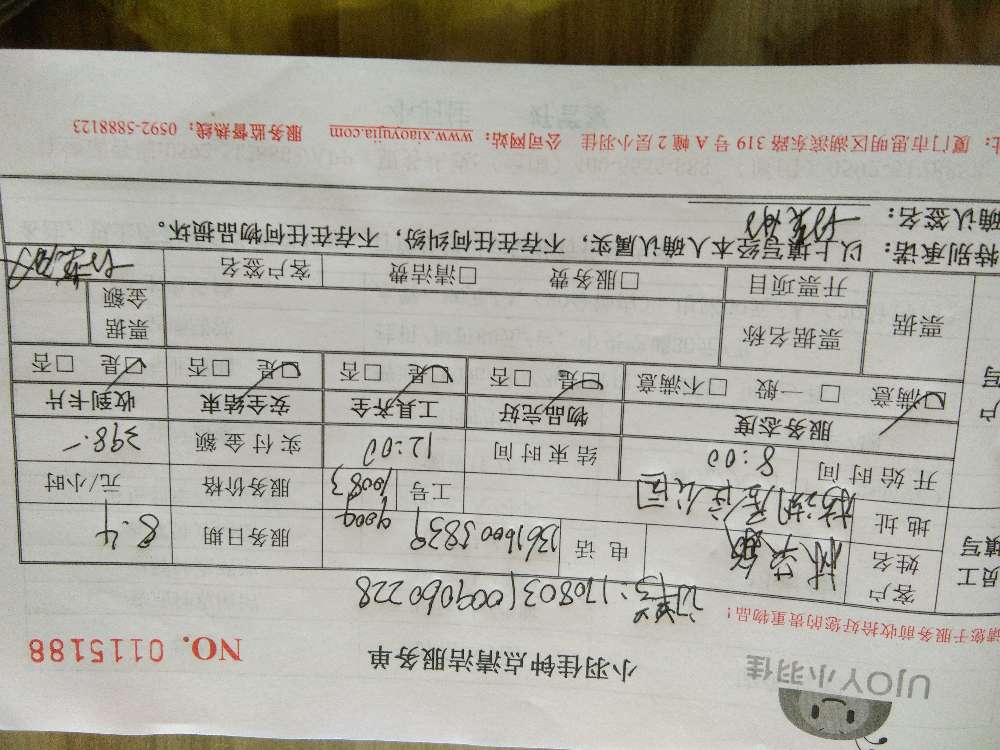 UJOY小羽佳
小羽佳钟点清洁服务单
NO. 0115188
请您于服务前收拾好您的贵重物品!
订单号:1708031009060228
员工填写
客户姓名
电话
13616003839
服务日期
8.4
地址
工号
9009
10083
服务价格
元/小时
开始时间
8:00
结束时间
12:00
实付金额
398.-
服务态度
物品完好
工具齐全
安全结束
收到卡片
☑满意 □一般 □不满意
☑是 □否
☑是 □否
☑是 □否
☑是 □否
票据
票据名称
票据金额
开票项目
□服务费 □清洁费
客户签名
特别承诺:以上填写经本人确认属实,不存在任何纠纷,不存在任何物品损坏。
确认签名:
址:厦门市思明区湖滨东路319号A幢2层小羽佳 公司网站:www.xiaoyujia.com 服务监督热线:0592-5888123